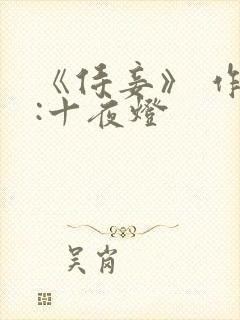 《侍妾》 作
:十夜燈
吴肖